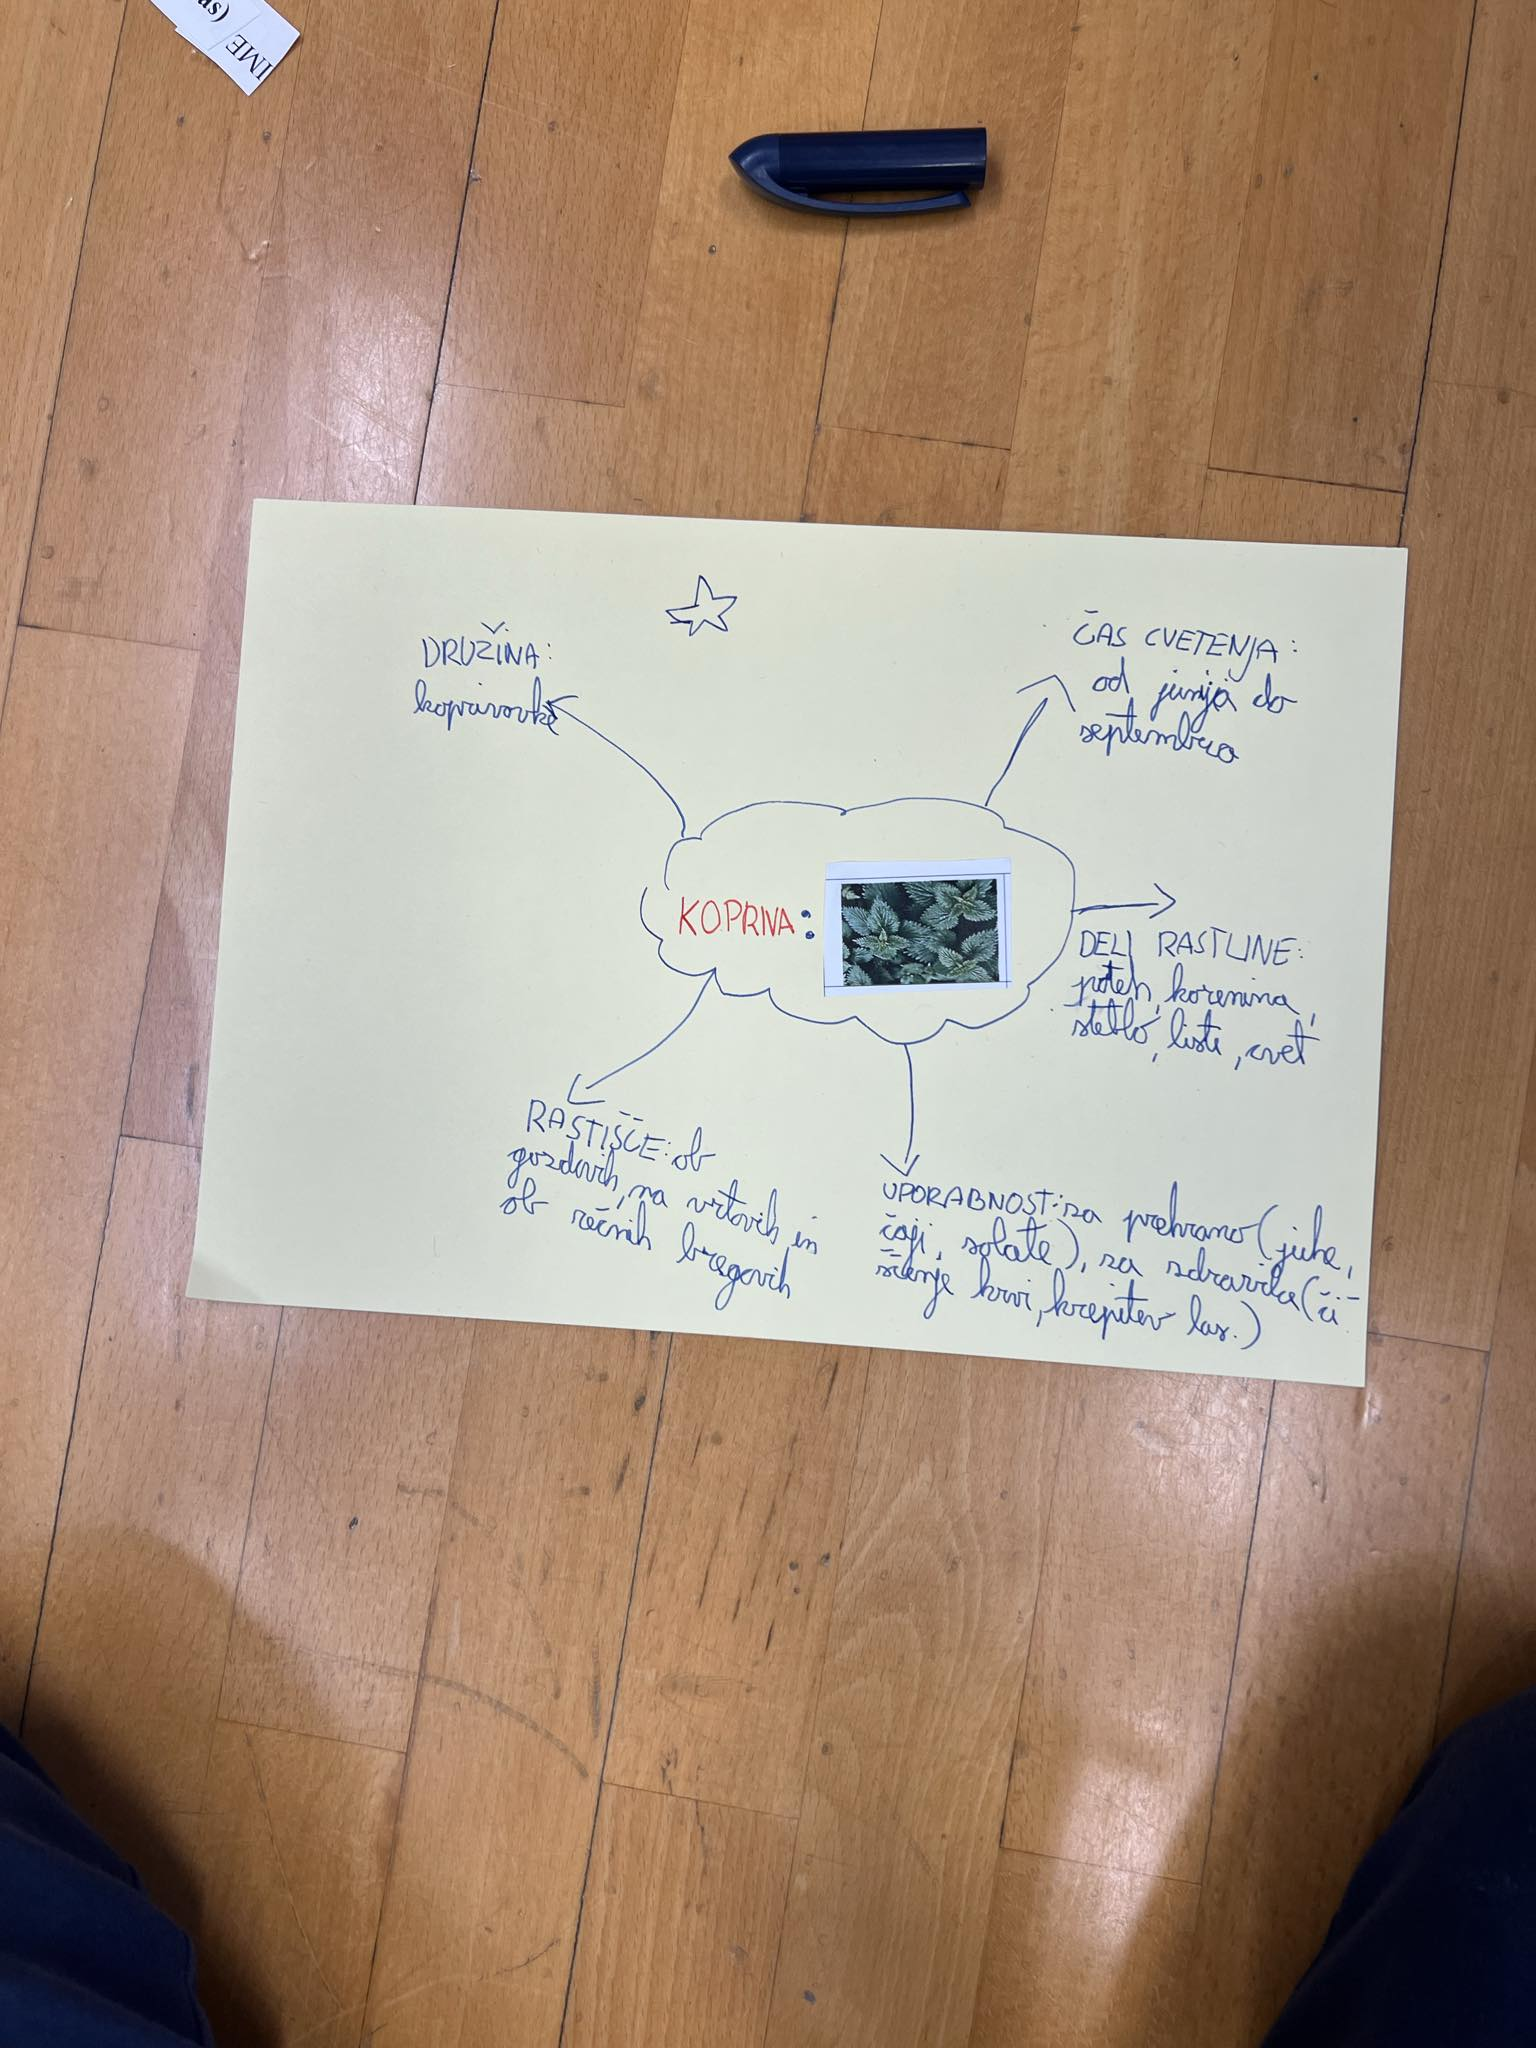 IME
(sp
DRUŽINA:
koprivovke
ČAS CVETENJA:
od junija do
septembra
KOPRIVA:
DELI RASTLINE:
korenina,
steblo, listi, cvet
RASTIŠČE: ob
gozdovih, na vrtovih in
ob rečnih bregovih
UPORABNOST: za prehrano (juhe,
čaji, solate), za zdravila (či-
ščenje krvi, krepitev las.)